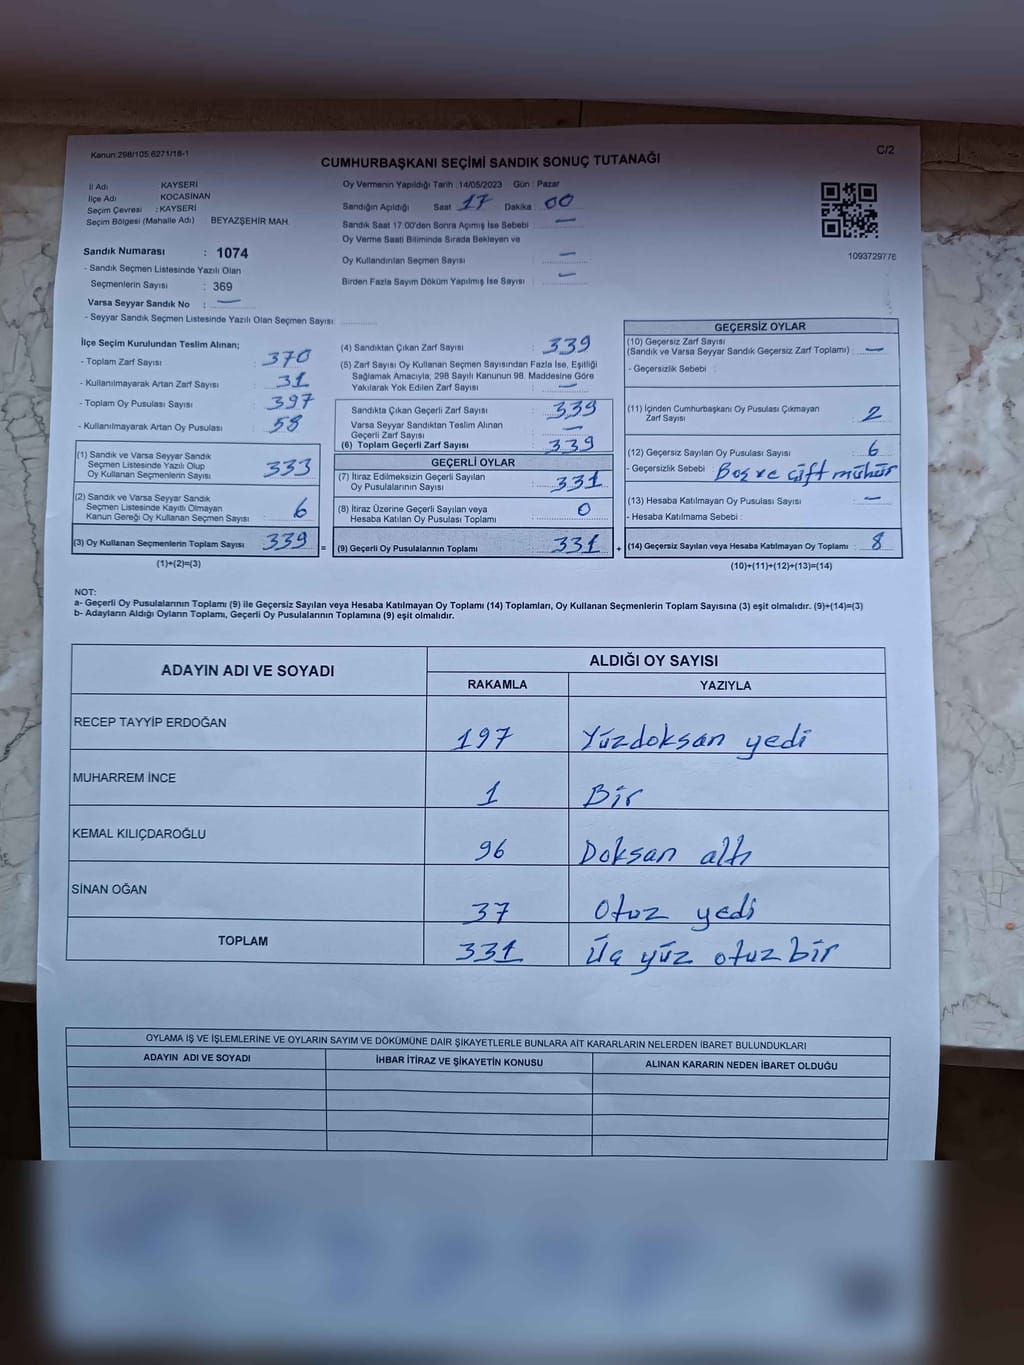 Kanun:298/105;6271/18-1
C/2
CUMHURBAŞKANI SEÇİMİ SANDIK SONUÇ TUTANAĞI
İl Adı KAYSERİ
İlçe Adı : KOCASİNAN
Seçim Çevresi : KAYSERİ
Seçim Bölgesi (Mahalle Adı) : BEYAZŞEHİR MAH.
Sandık Numarası : 1074
- Sandık Seçmen Listesinde Yazılı Olan
Seçmenlerin Sayısı : 369
Varsa Seyyar Sandık No : —
- Seyyar Sandık Seçmen Listesinde Yazılı Olan Seçmen Sayısı:
Oy Vermenin Yapıldığı Tarih : 14/05/2023 Gün : Pazar
Sandığın Açıldığı Saat 17 Dakika 00
Sandık Saat 17:00'den Sonra Açımış İse Sebebi : —
Oy Verme Saati Bitiminde Sırada Bekleyen ve
Oy Kullandırılan Seçmen Sayısı : —
Birden Fazla Sayım Döküm Yapılmış İse Sayısı : —
1093729776
İlçe Seçim Kurulundan Teslim Alınan;
- Toplam Zarf Sayısı : 370
- Kullanılmayarak Artan Zarf Sayısı : 31
- Toplam Oy Pusulası Sayısı : 397
- Kullanılmayarak Artan Oy Pusulası : 58
(1) Sandık ve Varsa Seyyar Sandık
Seçmen Listesinde Yazılı Olup
Oy Kullanan Seçmenlerin Sayısı : 333
(2) Sandık ve Varsa Seyyar Sandık
Seçmen Listesinde Kayıtlı Olmayan
Kanun Gereği Oy Kullanan Seçmen Sayısı : 6
(3) Oy Kullanan Seçmenlerin Toplam Sayısı : 339
(1)+(2)=(3)
(4) Sandıktan Çıkan Zarf Sayısı : 339
(5) Zarf Sayısı Oy Kullanan Seçmen Sayısından Fazla İse, Eşitliği
Sağlamak Amacıyla; 298 Sayılı Kanunun 98. Maddesine Göre
Yakılarak Yok Edilen Zarf Sayısı : —
Sandıkta Çıkan Geçerli Zarf Sayısı : 339
Varsa Seyyar Sandıktan Teslim Alınan
Geçerli Zarf Sayısı : —
(6) Toplam Geçerli Zarf Sayısı : 339
GEÇERLİ OYLAR
(7) İtiraz Edilmeksizin Geçerli Sayılan
Oy Pusulalarının Sayısı : 331
(8) İtiraz Üzerine Geçerli Sayılan veya
Hesaba Katılan Oy Pusulası Toplamı : 0
= (9) Geçerli Oy Pusulalarının Toplamı : 331 +
GEÇERSİZ OYLAR
(10) Geçersiz Zarf Sayısı
(Sandık ve Varsa Seyyar Sandık Geçersiz Zarf Toplamı) : —
- Geçersizlik Sebebi :
(11) İçinden Cumhurbaşkanı Oy Pusulası Çıkmayan
Zarf Sayısı : 2
(12) Geçersiz Sayılan Oy Pusulası Sayısı : 6
- Geçersizlik Sebebi : Boş ve çift mühür
(13) Hesaba Katılmayan Oy Pusulası Sayısı : —
- Hesaba Katılmama Sebebi :
(14) Geçersiz Sayılan veya Hesaba Katılmayan Oy Toplamı : 8
(10)+(11)+(12)+(13)=(14)
NOT:
a- Geçerli Oy Pusulalarının Toplamı (9) ile Geçersiz Sayılan veya Hesaba Katılmayan Oy Toplamı (14) Toplamları, Oy Kullanan Seçmenlerin Toplam Sayısına (3) eşit olmalıdır. (9)+(14)=(3)
b- Adayların Aldığı Oyların Toplamı, Geçerli Oy Pusulalarının Toplamına (9) eşit olmalıdır.
ADAYIN ADI VE SOYADI ALDIĞI OY SAYISI
RAKAMLA YAZIYLA
RECEP TAYYİP ERDOĞAN 197 Yüzdoksan yedi
MUHARREM İNCE 1 Bir
KEMAL KILIÇDAROĞLU 96 Doksan altı
SİNAN OĞAN 37 Otuz yedi
TOPLAM 331 Üç yüz otuz bir
OYLAMA İŞ VE İŞLEMLERİNE VE OYLARIN SAYIM VE DÖKÜMÜNE DAİR ŞİKAYETLERLE BUNLARA AİT KARARLARIN NELERDEN İBARET BULUNDUKLARI
ADAYIN ADI VE SOYADI İHBAR İTİRAZ VE ŞİKAYETİN KONUSU ALINAN KARARIN NEDEN İBARET OLDUĞU